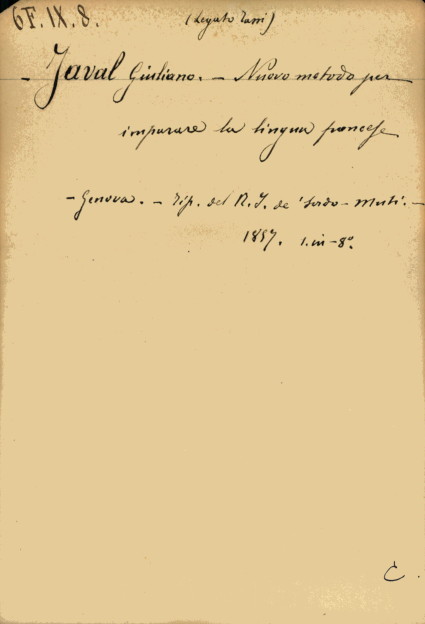 6F. IX. 8.
(Legato Zani)
- Javal Giuliano. - Nuovo metodo per
imparare la lingua francese
- Genova. - Tip. del R. I. de' Sordo-Muti. -
1857. 1. in-8º.
C.